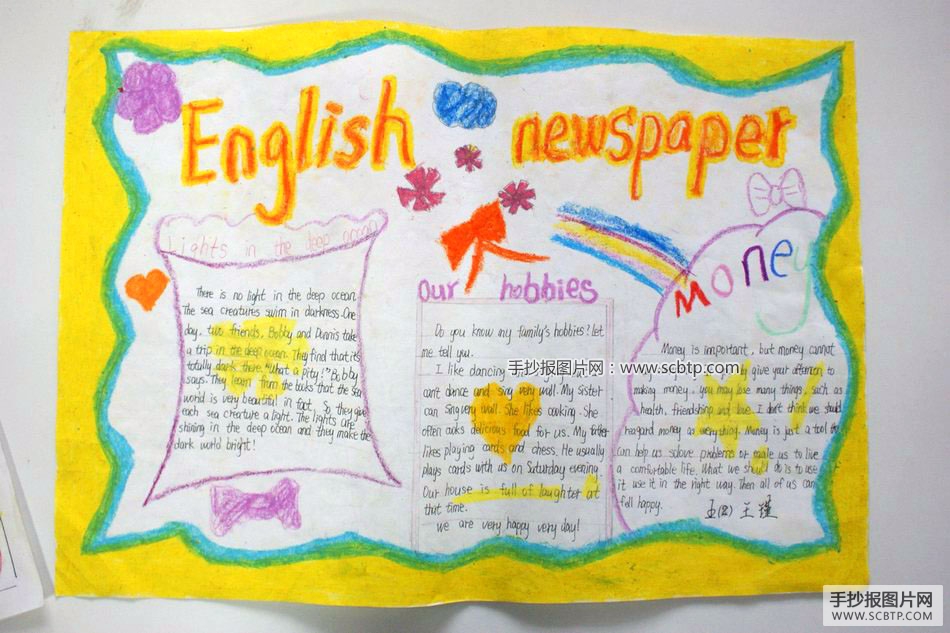 English newspaper
Lights in the deep ocean
There is no light in the deep ocean.
The sea creatures swim in darkness. One
day, two friends, Bobby and Dennis take
a trip in the deep ocean. They find that it's
totally dark there. "What a pity!" Bobby
says. They learn from the books that the sea
world is very beautiful in fact. So they give
each sea creature a light. The lights are
shining in the deep ocean and they make the
dark world bright!
Our hobbies
Do you know my family's hobbies? let
me tell you.
I like dancing
can't dance and sing very well. My sister
can sing very well. She likes cooking. She
often cooks delicious food for us. My father
likes playing cards and chess. He usually
plays cards with us on Saturday evening.
Our house is full of laughter at
that time.
we are very happy very day!
Money
Money is important, but money cannot
by give your attention to
making money, you may lose many things, such as
health, friendship and love. I don't think we should
regard money as everything. Money is just a tool
can help us solove problems or make us to live
a comfortable life. What we should do is to use
it use it in the right way. Then all of us can
fell happy.
王瑾
手抄报图片网：www.scbtp.com
手抄报图片网
WWW.SCBTP.COM